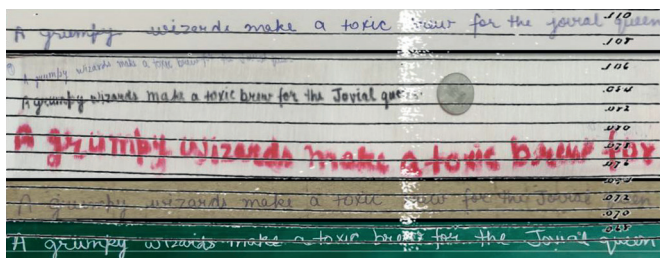 A grumpy wizards make a toxic brew for the jovial queen
A grumpy wizards make a toxic brew for the
A grumpy wizards make a toxic brew for the Jovial
A grumpy wizards make a toxic brew for
A grumpy wizards make a toxic for the Jovial
A grumpy wizards make a toxic brew for the Jovial queen